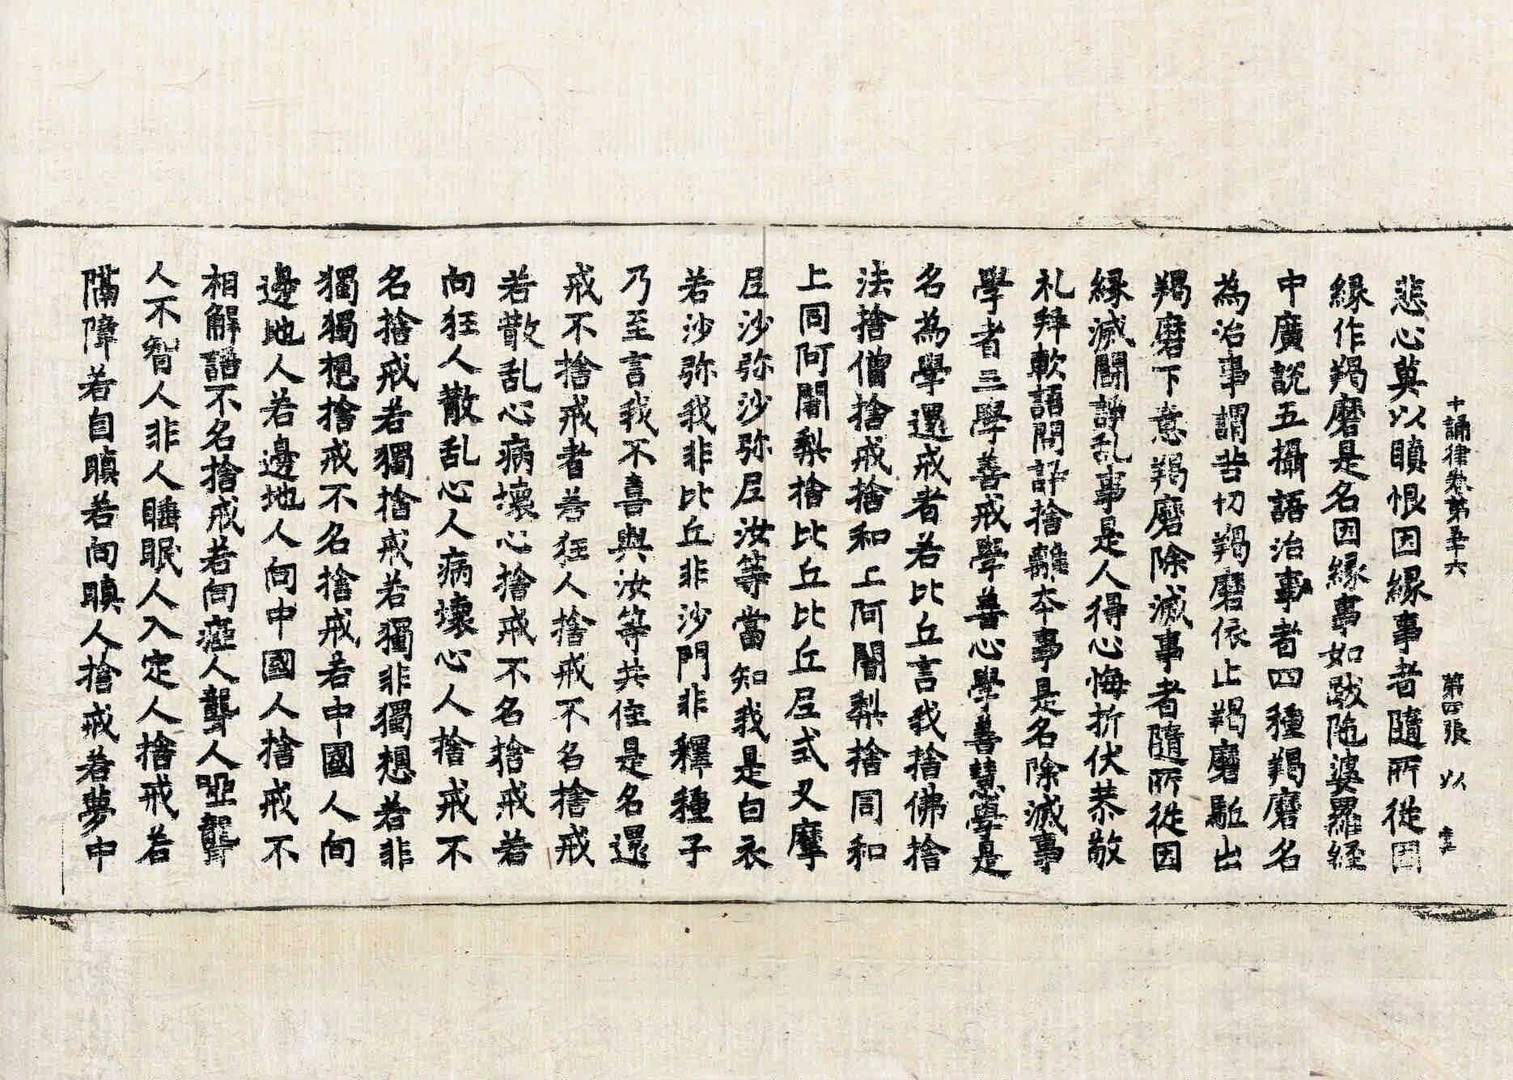 十誦律卷第五十六　第四張　以
悲心莫以瞋恨因緣事者隨所從因
緣作羯磨是名因緣事如跋陁婆羅經
中廣說五攝語治事者四種羯磨名
為治事謂苦切羯磨依止羯磨駈出
羯磨下意羯磨除滅事者隨所從因
緣滅鬪諍乱事是人得心悔折伏恭敬
礼拜軟語問訊捨離本事是名除滅事
學者三學善戒學善心學善慧學是
名為學還戒者若比丘言我捨佛捨
法捨僧捨戒捨和上阿闍梨捨同和
上同阿闍梨捨比丘比丘尼式叉摩
尼沙弥沙弥尼汝等當知我是白衣
若沙弥我非比丘非沙門非釋種子
乃至言我不喜與汝等共住是名還
戒不捨戒者若狂人捨戒不名捨戒
若散乱心病壞心捨戒不名捨戒若
向狂人散乱心人病壞心人捨戒不
名捨戒若獨捨戒若獨非獨想若非
獨獨想捨戒不名捨戒若中國人向
邊地人若邊地人向中國人捨戒不
相解語不名捨戒若向瘂人聾人啞聾
人不智人非人睡眠人入定人捨戒若
隔障若自瞋若向瞋人捨戒若夢中